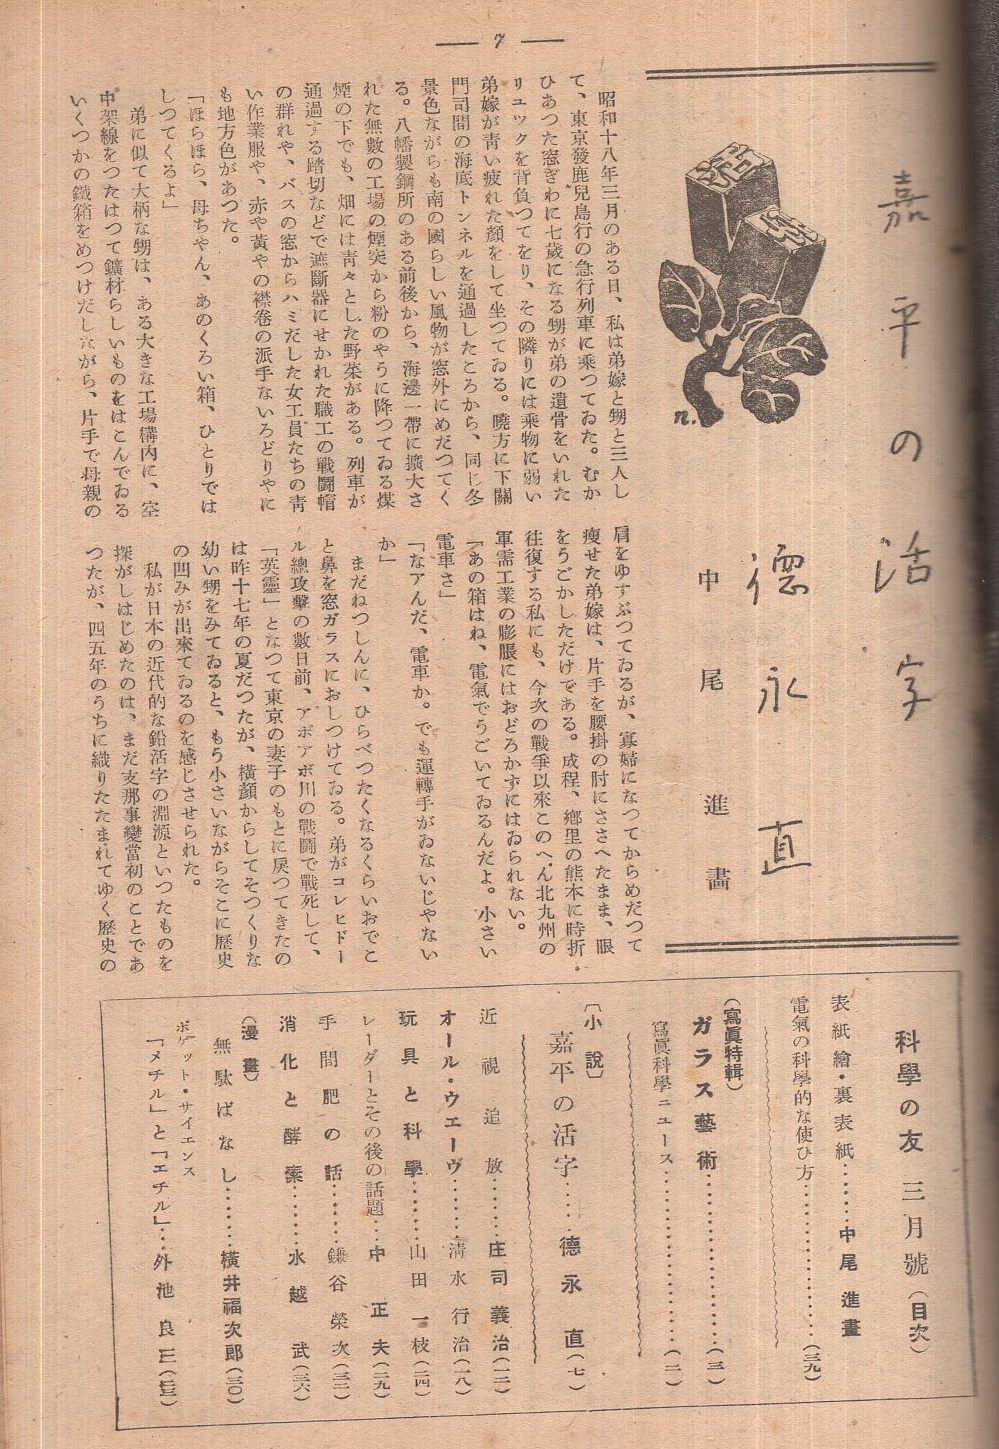 — 7 —
嘉平の活字
德永直
中尾進畵
昭和十八年三月のある日、私は弟嫁と甥と三人し
て、東京發鹿兒島行の急行列車に乘つてゐた。むか
ひあつた窓ぎわに七歲になる甥が弟の遺骨をいれた
リユツクを背負つてをり、その隣りには乘物に弱い
弟嫁が靑い疲れた顏をして坐つてゐる。曉方に下關
門司間の海底トンネルを通過したころから、同じ冬
景色ながらも南の國らしい風物が窓外にめだつてく
る。八幡製鋼所のある前後から、海邊一帶に擴大さ
れた無數の工場の煙突から粉のやうに降つてゐる煤
煙の下でも、畑には靑々とした野菜がある。列車が
通過する踏切などで遮斷器にせかれた職工の戰鬪帽
の群れや、バスの窓からハミだした女工員たちの靑
い作業服や、赤や黃やの襟卷の派手ないろどりやに
も地方色があつた。
「ほらほら、母ちやん、あのくろい箱、ひとりでは
しつてくるよ」
弟に似て大柄な甥は、ある大きな工場構內に、空
中架線をつたはつて鑛材らしいものをはこんでゐる
いくつかの鐵箱をめつけだしながら、片手で母親の
肩をゆすぶつてゐるが、寡婦になつてからめだつて
瘦せた弟嫁は、片手を腰掛の肘にささへたまま、眼
をうごかしただけである。成程、鄕里の熊本に時折
往復する私にも、今次の戰爭以來このへん北九州の
軍需工業の膨脹にはおどろかずにはゐられない。
「あの箱はね、電氣でうごいてゐるんだよ。小さい
電車さ」
「なアんだ、電車か。でも運轉手がゐないじやない
か」
まだねつしんに、ひらべつたくなるくらいおでこ
と鼻を窓ガラスにおしつけてゐる。弟がコレヒドー
ル總攻擊の數日前、アボアボ川の戰鬪で戰死して、
「英靈」となつて東京の妻子のもとに戾つてきたの
は昨十七年の夏だつたが、橫顏からしてそつくりな
幼い甥をみてゐると、もう小さいながらそこに歷史
の凹みが出來てゐるのを感じさせられた。
私が日本の近代的な鉛活字の淵源といつたものを
探がしはじめたのは、まだ支那事變當初のことであ
つたが、四五年のうちに織りたたまれてゆく歷史の
n.
科學の友 三月號（目次）
表紙繪・裏表紙………中尾進畵
電氣の科學的な使ひ方…………（三九）
（寫眞特輯）
ガラス藝術…………（三）
寫眞科學ニユース…………（二）
〔小說〕
嘉平の活字……德永直（七）
近視追放………庄司義治（一二）
オール・ウエーヴ………淸水行治（一八）
玩具と科學………山田一枝（二四）
レーダーとその後の話題…中正夫（二九）
手間肥の話………鎌谷榮次（三二）
消化と酵素………水越武（三六）
（漫畫）
無駄ばなし………橫井福次郎（三〇）
ポケット・サイエンス
「メチル」と「エチル」…外池良三